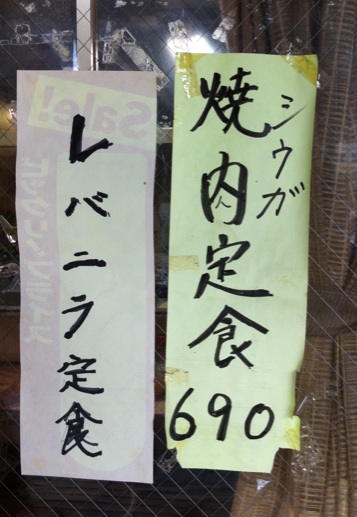 シウガ
焼肉定食
690
レバニラ定食
Sale!